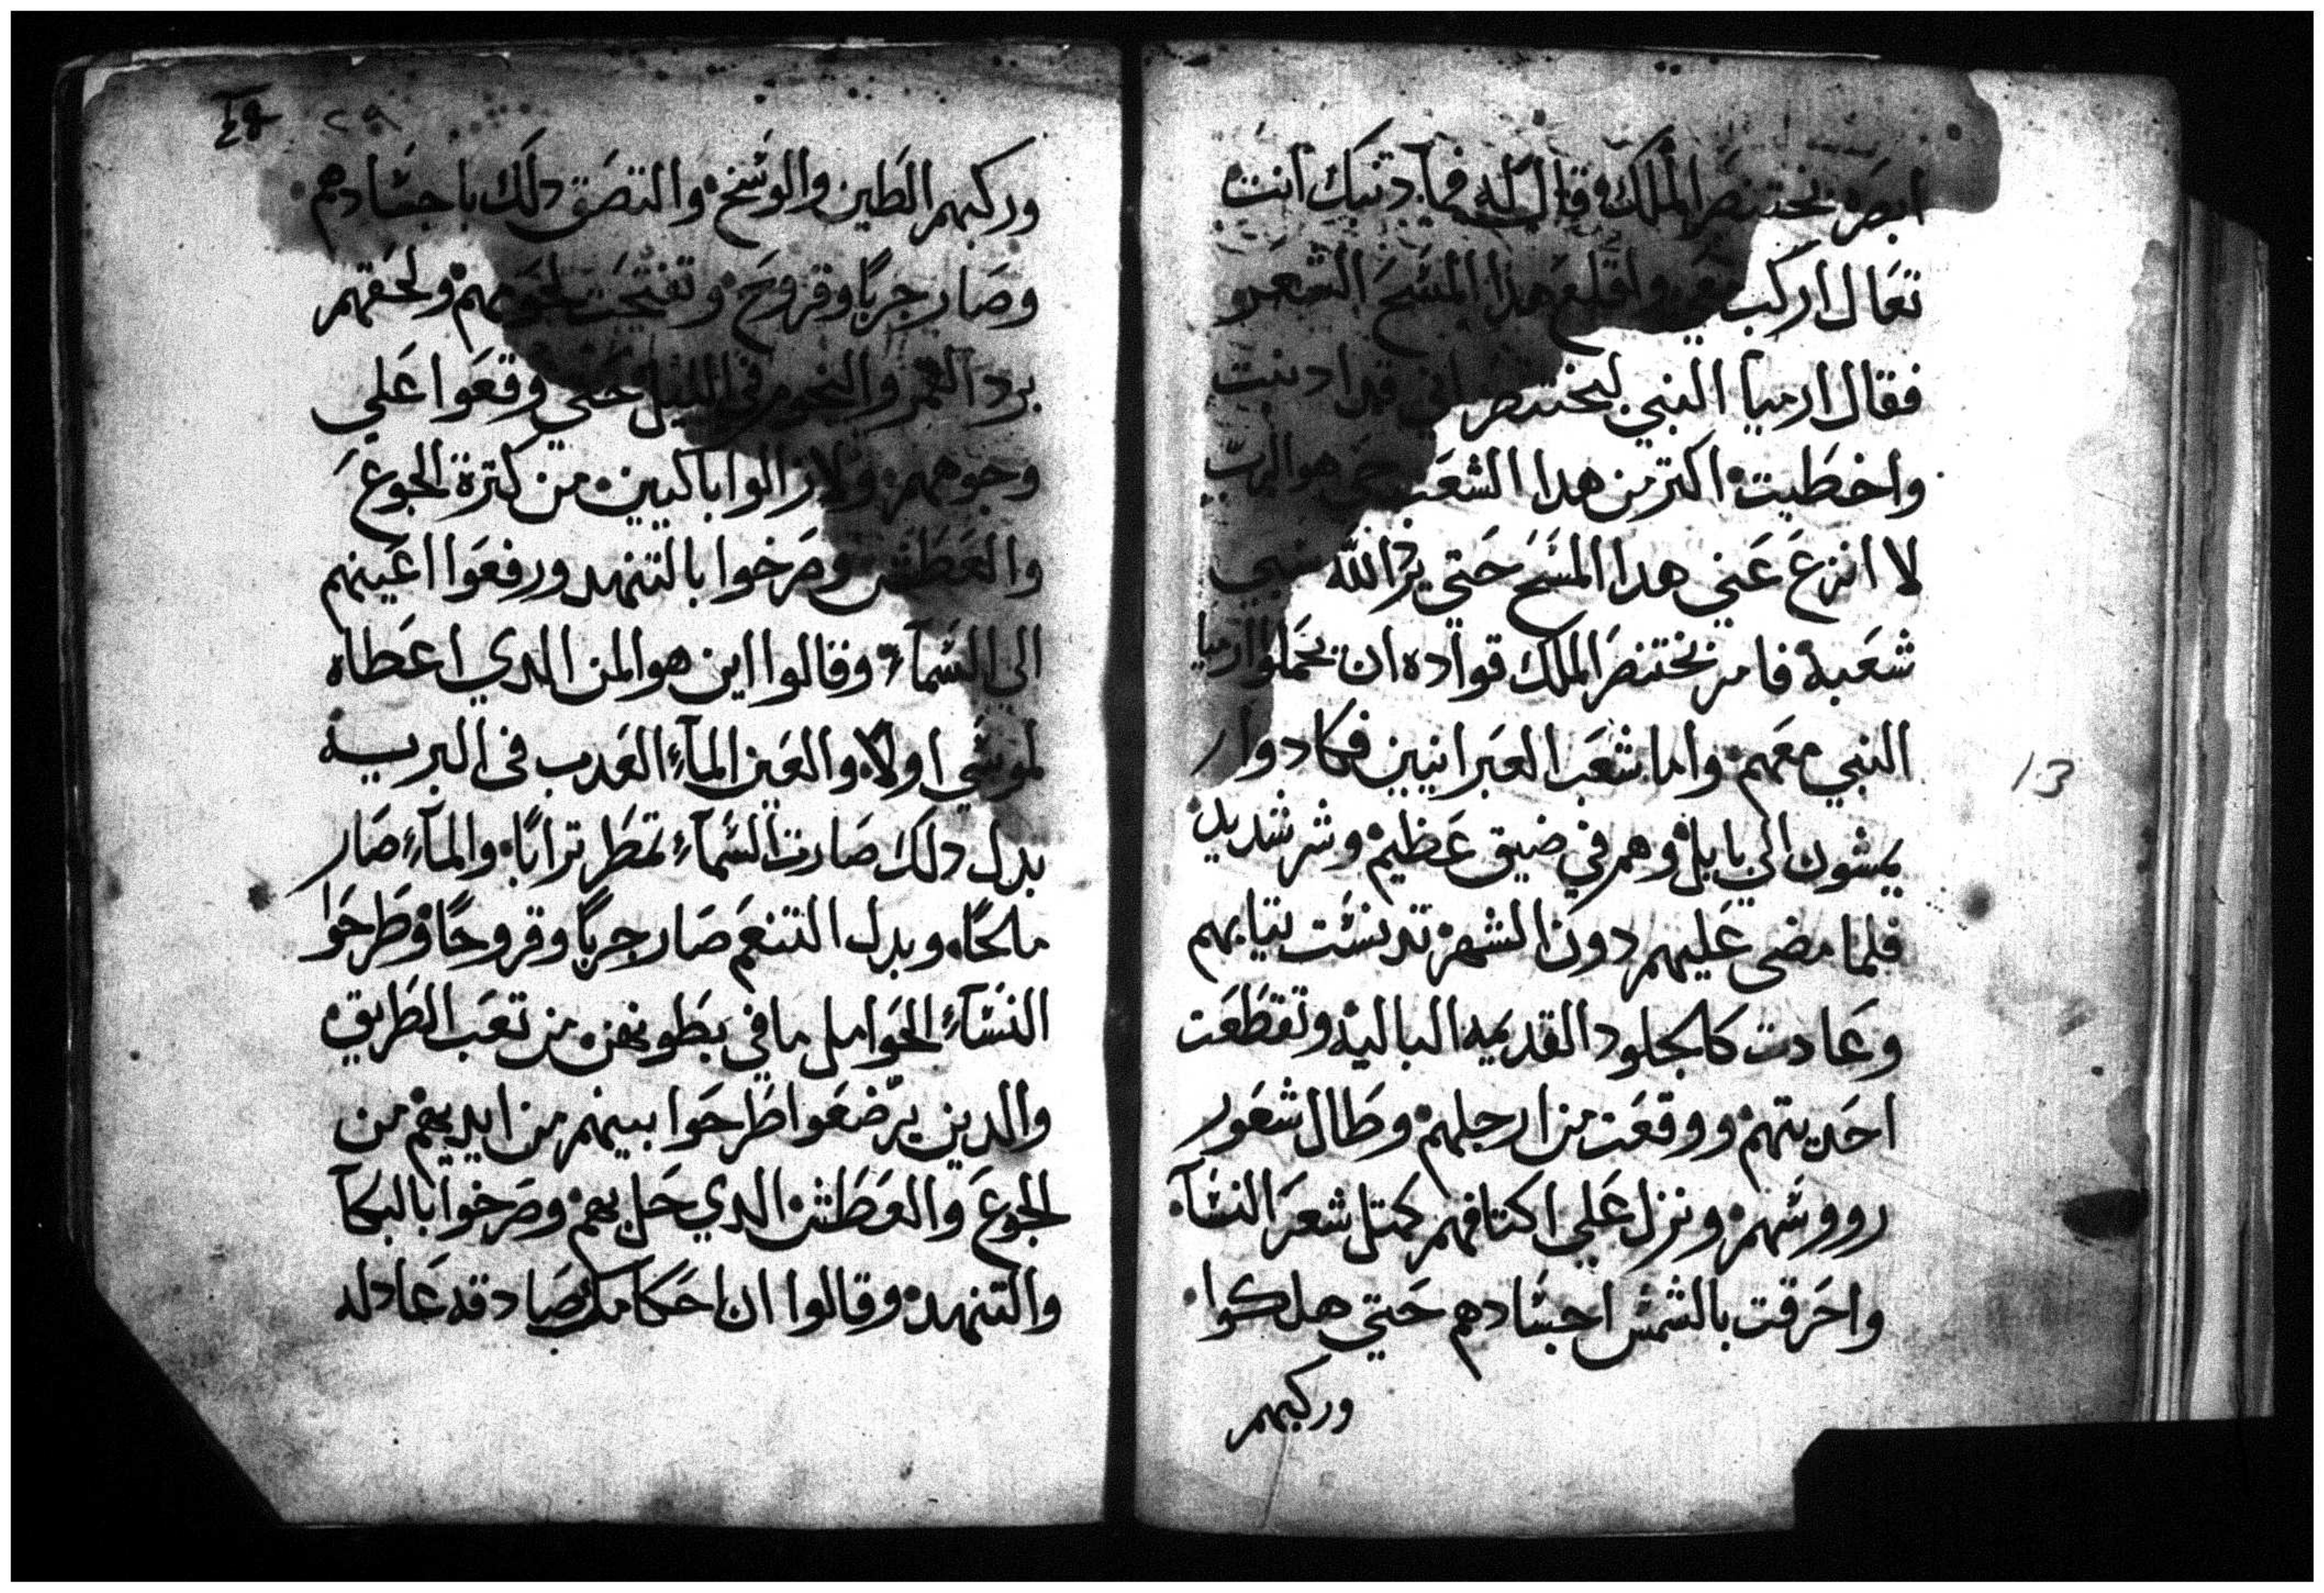 ابصره بختنصر الملك وقال له فما دنبك انت
تعال اركب واقلع هدا المسح الشعر و
فقال ارميا النبي لبختنصر اني قد ادنبت
واخطيت اكتر من هدا الشعب حي هو الرب
لا انزع عني هدا المسح حتي يرد الله سبي
شعبه فامر بختنصر الملك قواده ان يحملوا ارميا
النبي معهم واما شعب العبرانيين فكادوا
يمشون الي بابل وهم في ضيق عظيم وشر شديد
فلما مضى عليهم دون الشهر تدنست تيابهم
وعادت كالجلود القديمه الباليه وتقطعت
احديتهم ووقعت من ارجلهم وطال شعور
رووسهم ونزل علي اكتافهم كمتل شعر النسآ
واحرقت بالشمس اجسادهم حتي هلكوا
وركبهم
13
٢٩
وركبهم الطين والوسخ والتصق دلك باجسادهم
وصار جربًا وقروح وتفتحت لحومهم ولحقهم
برد القمر والنجوم في الليل حتي وقعوا علي
وجوههم ولازالوا باكيين من كترة الجوع
والعطش وصرخوا بالتنهد ورفعوا اعينهم
الي السمآء وقالوا اين هو المن الدي اعطاه
لموسي اولًا والعين المآء العدب فى البريه
بدل دلك صارت السمآء تمطر ترابًا والمآء صار
مالحًا وبدل التنعم صار جربًا وقروحًا وطرحوا
النسآء الحوامل ما في بطونهن من تعب الطريق
والدين يرضعوا طرحوا بينهم من ايديهم من
الجوع والعطش الدي حل بهم وصرخوا بالبكآ
والتنهد وقالوا ان احكامك صادقه عادله